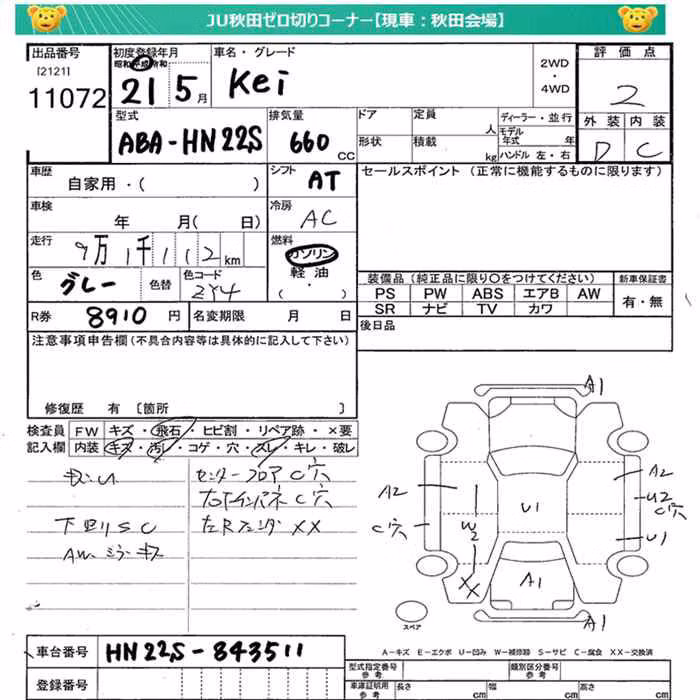 JU秋田ゼロ切りコーナー【現車：秋田会場】
出品番号 初度登録年月 車名・グレード 2WD・4WD 評価点
[2121] 昭和 平成 令和
11072 21 5月 Kei 2
型式 排気量 ドア 定員 人 ディーラー・並行 外装 内装
ABA-HN22S 660 CC 形状 積載 kg モデル年式 年 ハンドル 左・右 D C
車歴 自家用・( ) シフト AT セールスポイント (正常に機能するものに限ります)
車検 年 月( 日) 冷房 AC
走行 9万1千112km 燃料 ガソリン 軽油 ( ・ )
色 グレー 色替 色コード ZY4 装備品 (純正品に限り○をつけてください) 新車保証書
PS PW ABS エアB AW 有・無
SR ナビ TV カワ
R券 8910円 名変期限 月 日 後日品
注意事項申告欄(不具合内容等は具体的に記入して下さい)
修復歴 有 〔箇所 〕
検査員 FW キズ・飛石・ヒビ割・リペア跡・×要
記入欄 内装 キズ・汚レ・コゲ・穴・スレ・キレ・破レ
センターフロアC穴
右Fインパネ C穴
下回りSC 左Rフェンダ XX
AW ミラーキズ
A1
A2 A2
U2
C穴 W2 U1 C穴
U1
XX A1
A1
スペア
A-キズ E-エクボ U-凹み W-補修跡 S-サビ C-腐食 XX-交換済
車台番号 HN22S-843511
登録番号
型式指定番号 参考 類別区分番号 参考
車庫証明用 参考 長さ cm 幅 cm 高さ cm